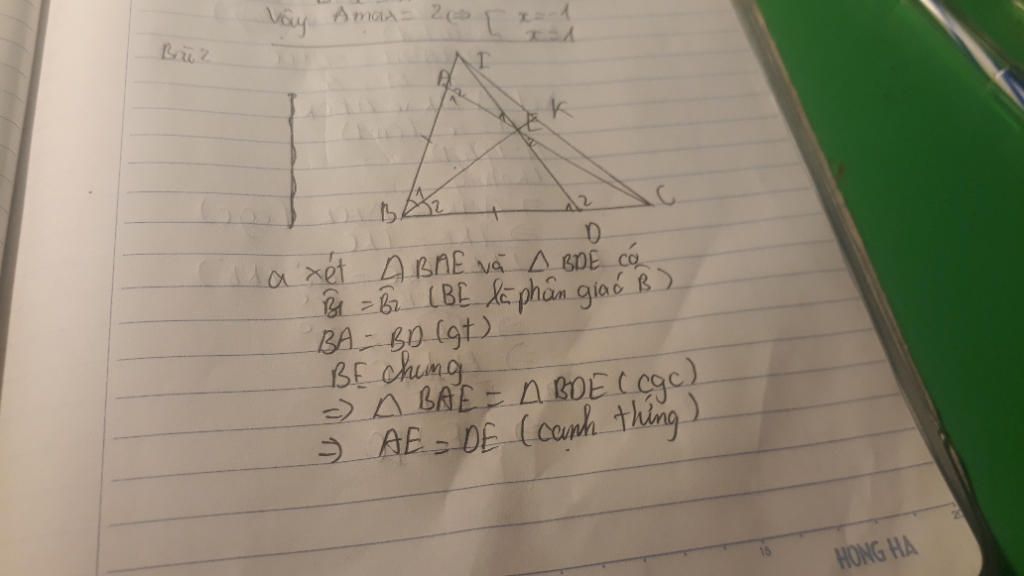 Vậy Amax = 2 <=> [ x=-1
x=1
Bài 2
I
A
1 2
K
1 E
2
B 1 2
1 2 C
D
a xét Δ BAE và Δ BDE có
B̂1 = B̂2 (BE là phân giác B̂)
BA = BD (gt)
BE chung
=> Δ BAE = Δ BDE (cgc)
=> AE = DE (cạnh tứng)
15 20
HONG HA